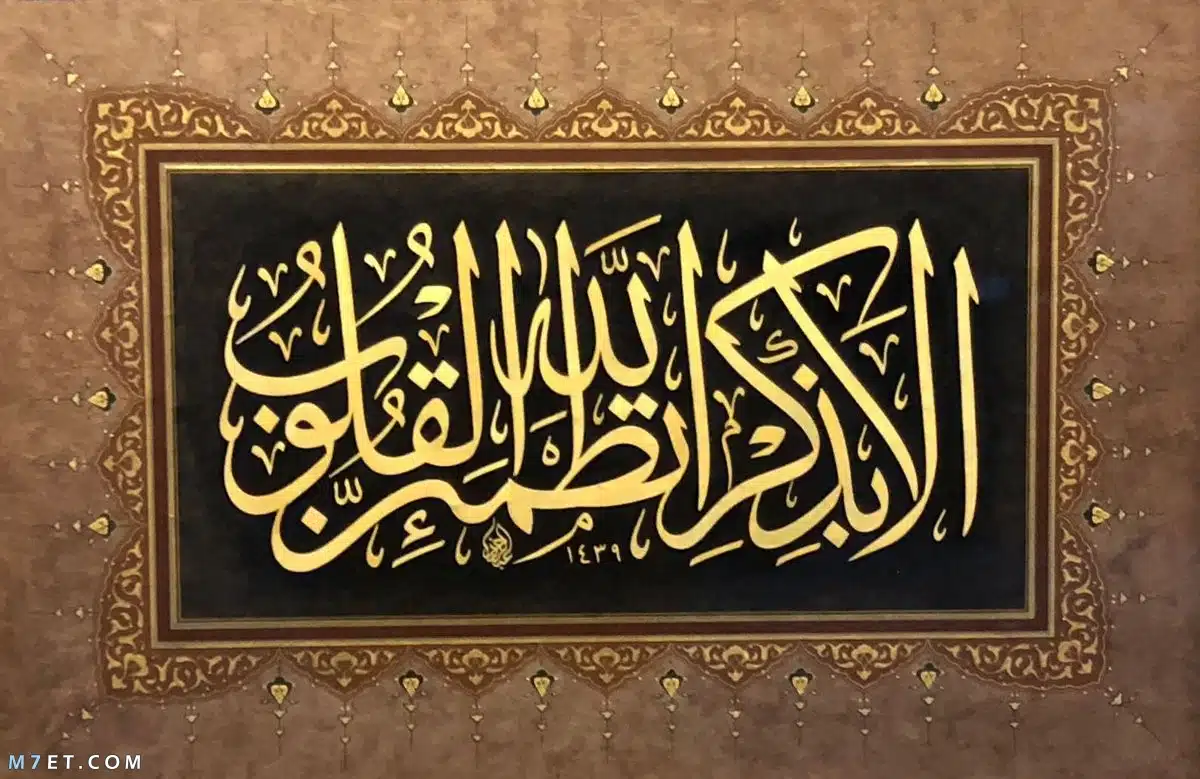 أَلَا بِذِكْرِ اللَّهِ تَطْمَئِنُّ الْقُلُوبُ
١٤٣٩
M7ET.COM